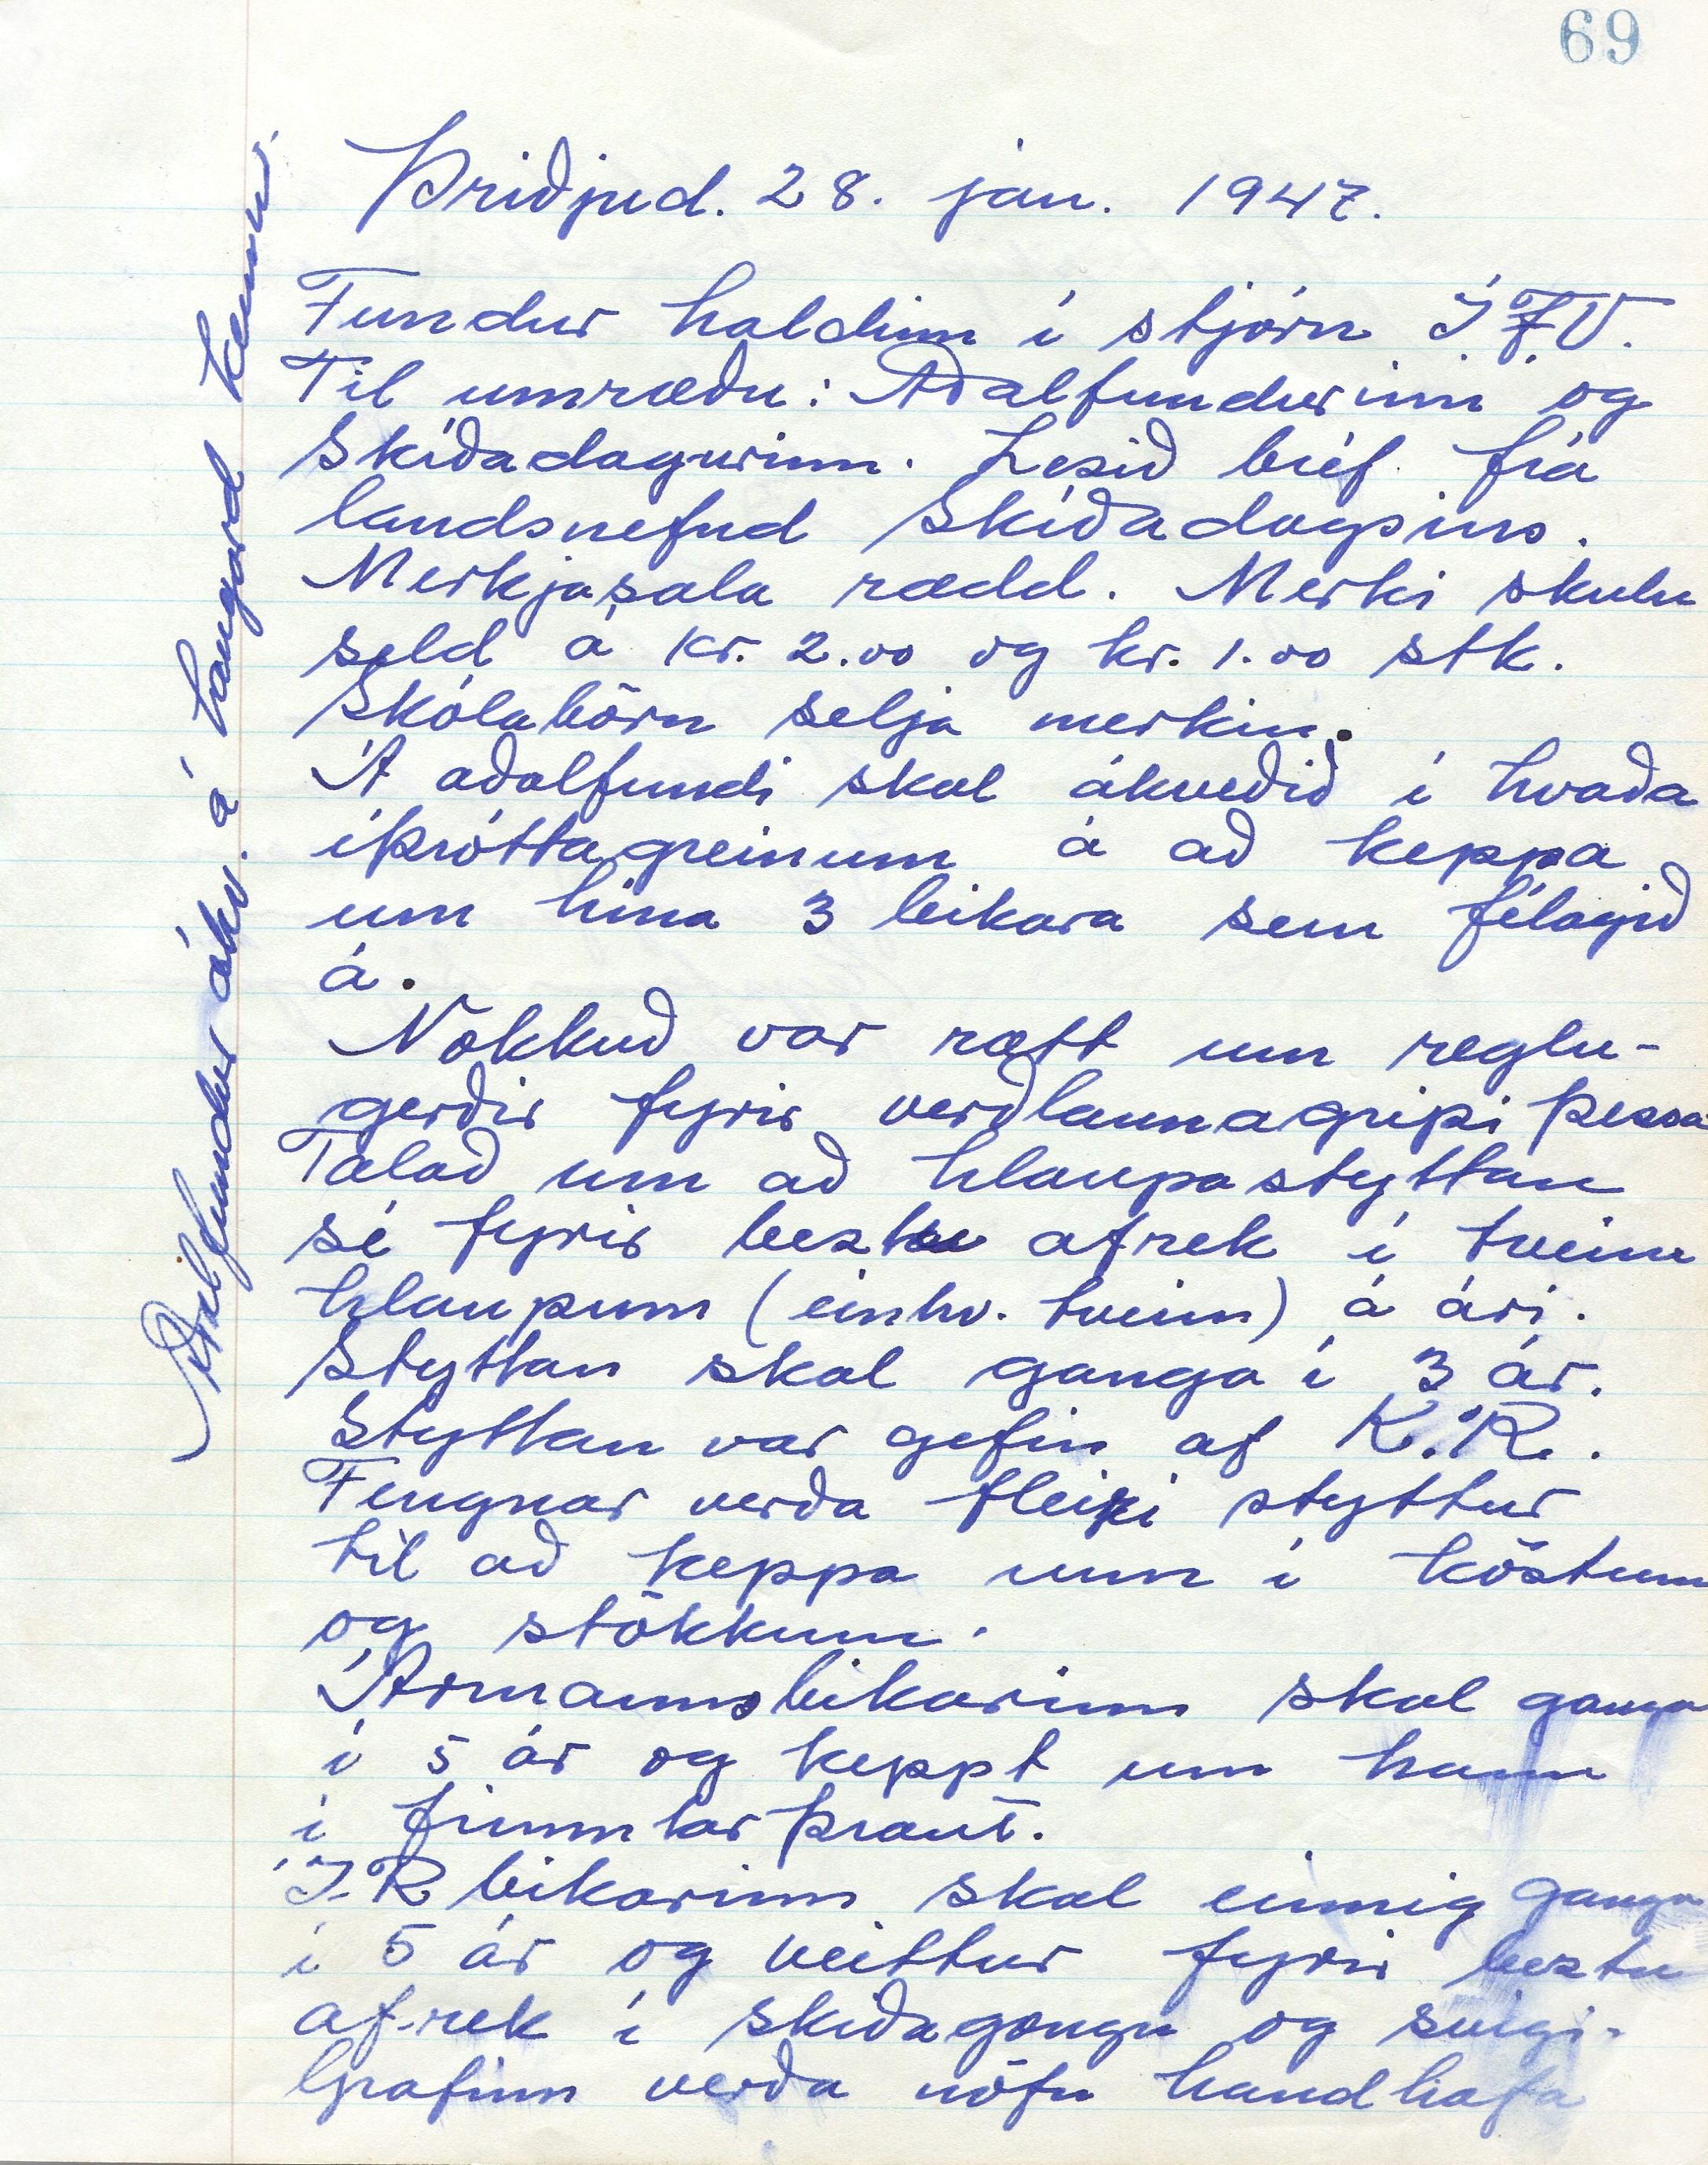 69
Þriðjud. 28. jan. 1947.
Fundur haldinn í stjórn ÍFV.
Til umræðu: Aðalfundurinn og
Skíðadagurinn. Lesið bréf frá
landsnefnd Skíðadagsins.
Merkjasala rædd. Merki skulu
seld á kr. 2.00 og kr. 1.00 stk.
Skólabörn selja merkin.
Á aðalfundi skal ákveðið í hvaða
íþróttagreinum á að keppa
um hina 3 bikara sem félagið
á.
Nokkuð var rætt um reglu-
gerðir fyrir verðlaunagripi þessa
Talað um að hlaupastyttan
sé fyrir beztu afrek í tveim
hlaupum (einhv. tveim) á ári.
Styttan skal ganga í 3 ár.
Styttan var gefin af K.R.
Fengnar verða fleiri styttur
til að keppa um í köstum
og stökkum.
Ármannsbikarinn skal ganga
í 5 ár og keppt um hann
í fimmtarþraut.
Í.R bikarinn skal einnig ganga
í 5 ár og veittur fyrir beztu
afrek í skíðagöngu og svigi.
Grafinn verða nöfn handhafa
Aðalfundur ákv. á laugard kemur.